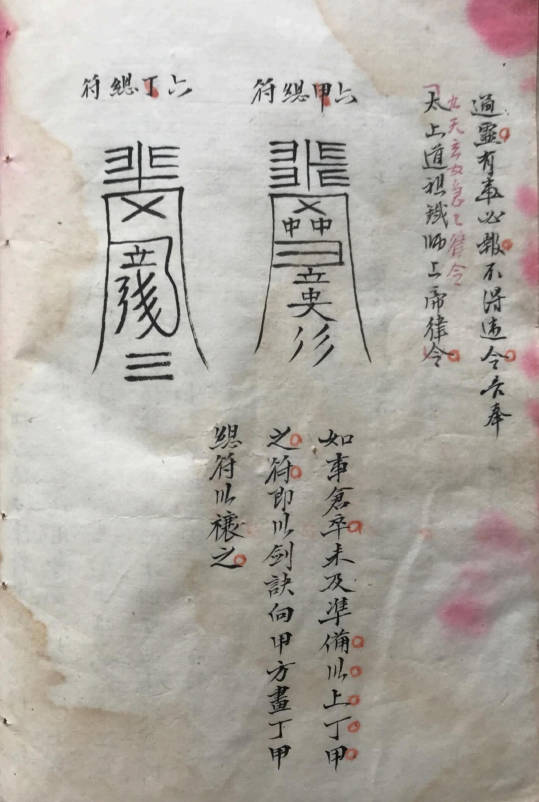 通靈有事必報不得违令吾奉
九天玄女急々律令
太上道祖鐵師上帝律令
六甲緫符
中中
立
六丁緫符
立
如事倉卒未及準備以上丁甲
之符即以劍訣向甲方畫丁甲
緫符以禳之